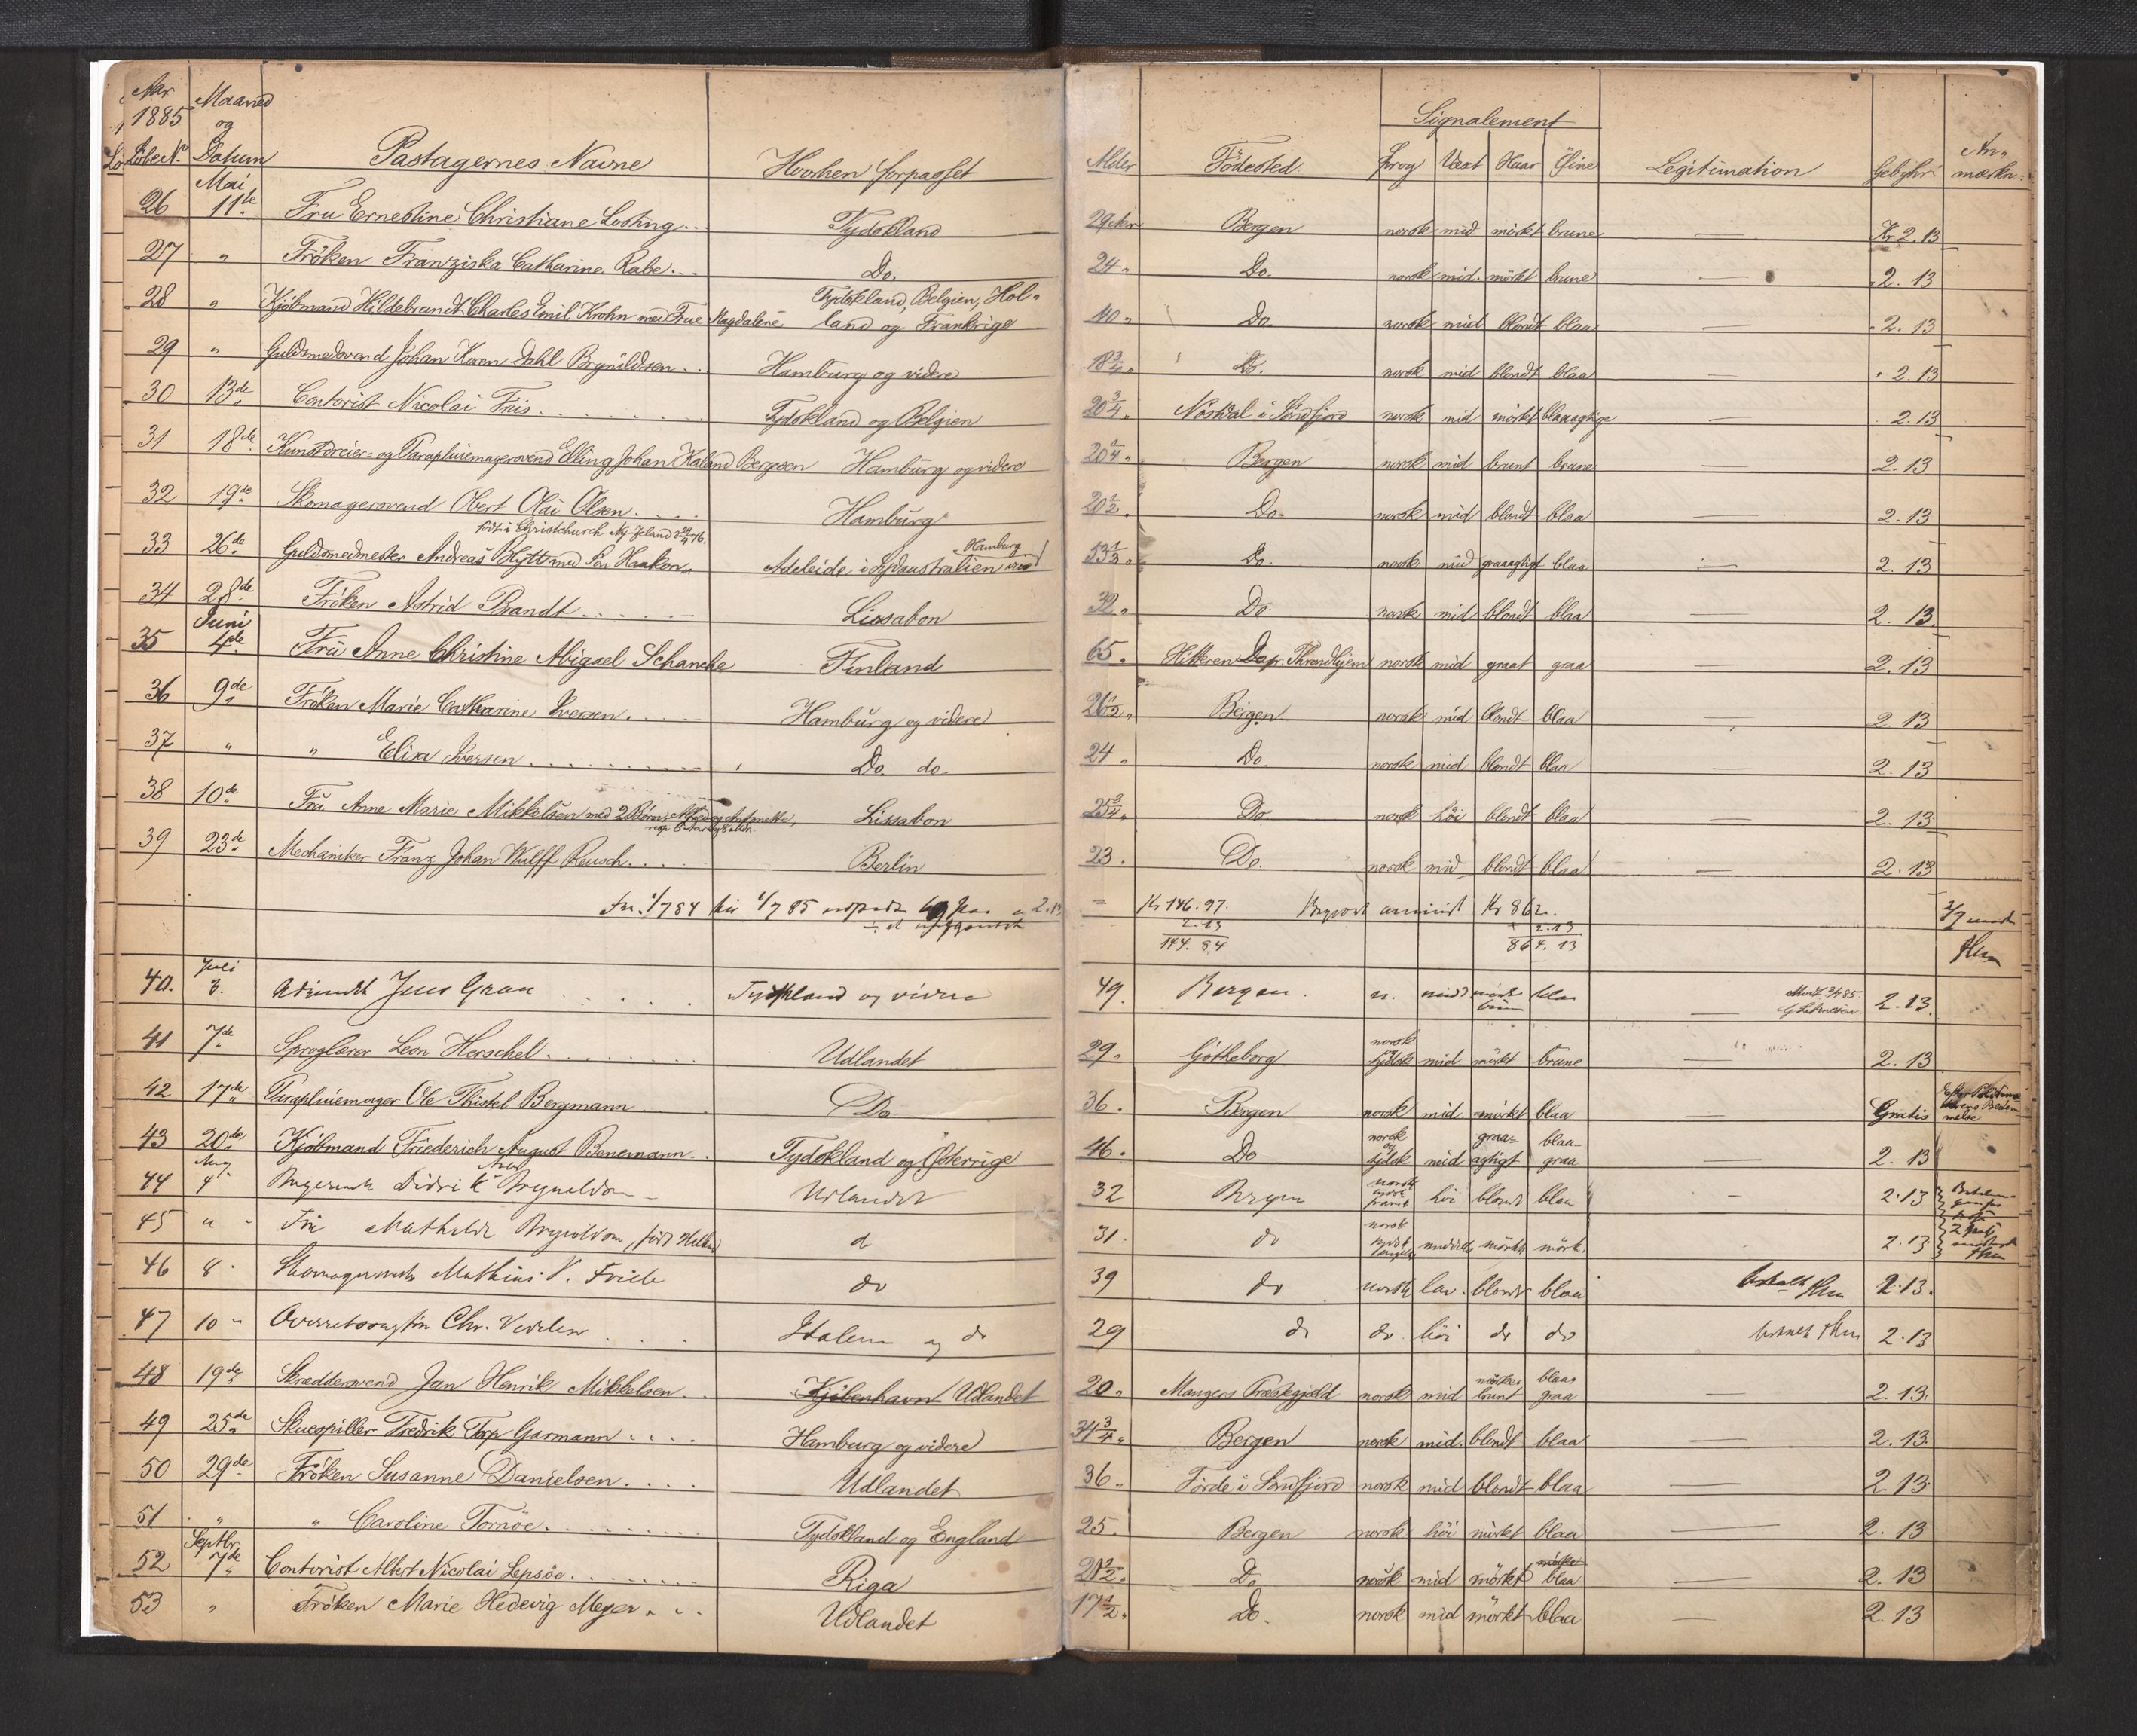 Aar 1885 Maaned og
LøbeNo. Datum Pastagernes Navne Hvorhen forpasset Alder Fødested Signalement Legitimation Gebyhr An-
Sprog Vext Haar Öine mærkn:
Mai
26 11te Fru Ernestine Christiane Losting.. Tydskland 29 Aar Bergen norsk mid mörkt brune — Kr 2.13
27 " Fröken Franziska Catharine Rabe... Do. 24 " Do. norsk mid. mörkt brune — 2.13
28 " Kjöbmand Hildebrandt Charles Emil Krohn med Frue Magdalene Tydskland, Belgien, Hol-
land og Frankrige 40 " Do. norsk mid blondt blaa — 2.13
29 " Guldsmedsvend Johan Koren Dahl Brynildsen.. Hamburg og videre 18 3/4 " Do. norsk mid blondt blaa — 2.13
30 13de Contorist Nicolai Friis....... Tydskland og Belgien 20 3/4 " Nöstdal i Söndfjord norsk mid mörkt blaaagtige — 2.13
31 18de Kunstdreier- og Parapluiemagersvend Elling Johan Kaland Bergesen Hamburg og videre 20 1/4 " Bergen norsk mid brunt brune — 2.13
32 19de Skomagersvend Obert Olai Olsen.... Hamburg 20 1/2 " Do. norsk mid blondt blaa — 2.13
födt i Christchurch Ny-Zeland
33 26de Guldsmedmester Andreas Hytt med Sön Haakon. Adeleide i Sydaustralien Hamburg 53 1/3 " Do. norsk mid graaagtigt blaa — 2.13
34 28de Fröken Astrid Brandt...... Lissabon 32 " Do. norsk mid blondt blaa — 2.13.
Juni
35 4de Fru Anne Christine Abigael Schanche Finland 65. Hitteren Do pr. Throndhjem norsk mid graat graa — 2.13
36 9de Fröken Marie Catharine Iversen..... Hamburg og videre 26 1/2 " Bergen norsk mid blondt blaa — 2.13
37 " " Elisa Iversen.......... Do. do. 24 " Do. norsk mid blondt blaa — 2.13
38 10de Fru Anne Marie Mikkelsen med 2 Børn: Alfred og Antonette, Lissabon 25 3/4 " Do norsk höi blondt blaa — 2.13
39 23de Mechaniker Franz Johan Wulff Reusch.... Berlin 23. Do. norsk mid blondt blaa — 2.13
Fra 1/7 84 til 1/7 85 a 2.13 = Kr 146.97. Kr 862.
2.13 + 2.13
144.84 864.13
Juli
40. 3. Jens Gran ..... Tydskland og videre 49. Bergen. n. midd mörk brun blaa — 2.13.
41 7de Sproglærer Leon Herschel......... Udlandet 29 " Götheborg norsk og tydsk mid. mörkt brune — 2.13
42 17de Parapluiemager Ole Thistel Bergmann.... Do 36. Bergen norsk mid mörkt blaa Gratis
43 20de Kjöbmand Friederich August Benemann.. Tydskland og Österrige 46. Do norsk og tydsk mid graa-agtigt blaa-graa — 2.13
Aug
44 4 Didrik Brynildsen Udlandet 32 Bergen norsk höi blondt blaa — 2.13
45 " " Fru Mathilde Brynildsen, født do 31. do norsk tydsk engelsk middels mörkt mörk. 2.13
46 8. Mathias V. Friele do 39 do norsk lav. blondt blaa betalt 2.13.
47 10 " Overretssagfør Chr. Vedeler .... Italien og do 29 do do höi do do betalt 2.13
48 19de Skræddersvend Jan Henrik Mikkelsen.. Kjöbenhavn Udlandet 20 " Mangers Præstegjeld norsk mid mörke-brunt blaa-graa — 2.13.
49 25de Skuespiller Fredrik Torp Garmann.... Hamburg og videre 34 3/4 " Bergen norsk mid. blondt blaa — 2.13.
50 29de Fröken Susanne Danielsen..... Udlandet 36 " Förde i Söndfjord norsk mid blondt blaa — 2.13.
51 " " Caroline Tornöe.......... Tydskland og England 25. Bergen norsk höi mörkt blaa — 2.13
Septbr.
52 7de Contorist Albert Nicolai Lepsöe......... Riga 21 1/2 " Do. norsk mid mörkt blaa — 2.13
53 " Fröken Marie Hedevig Meyer.... Udlandet 17 1/2 " Do. norsk mid mörkt blaa — 2.13